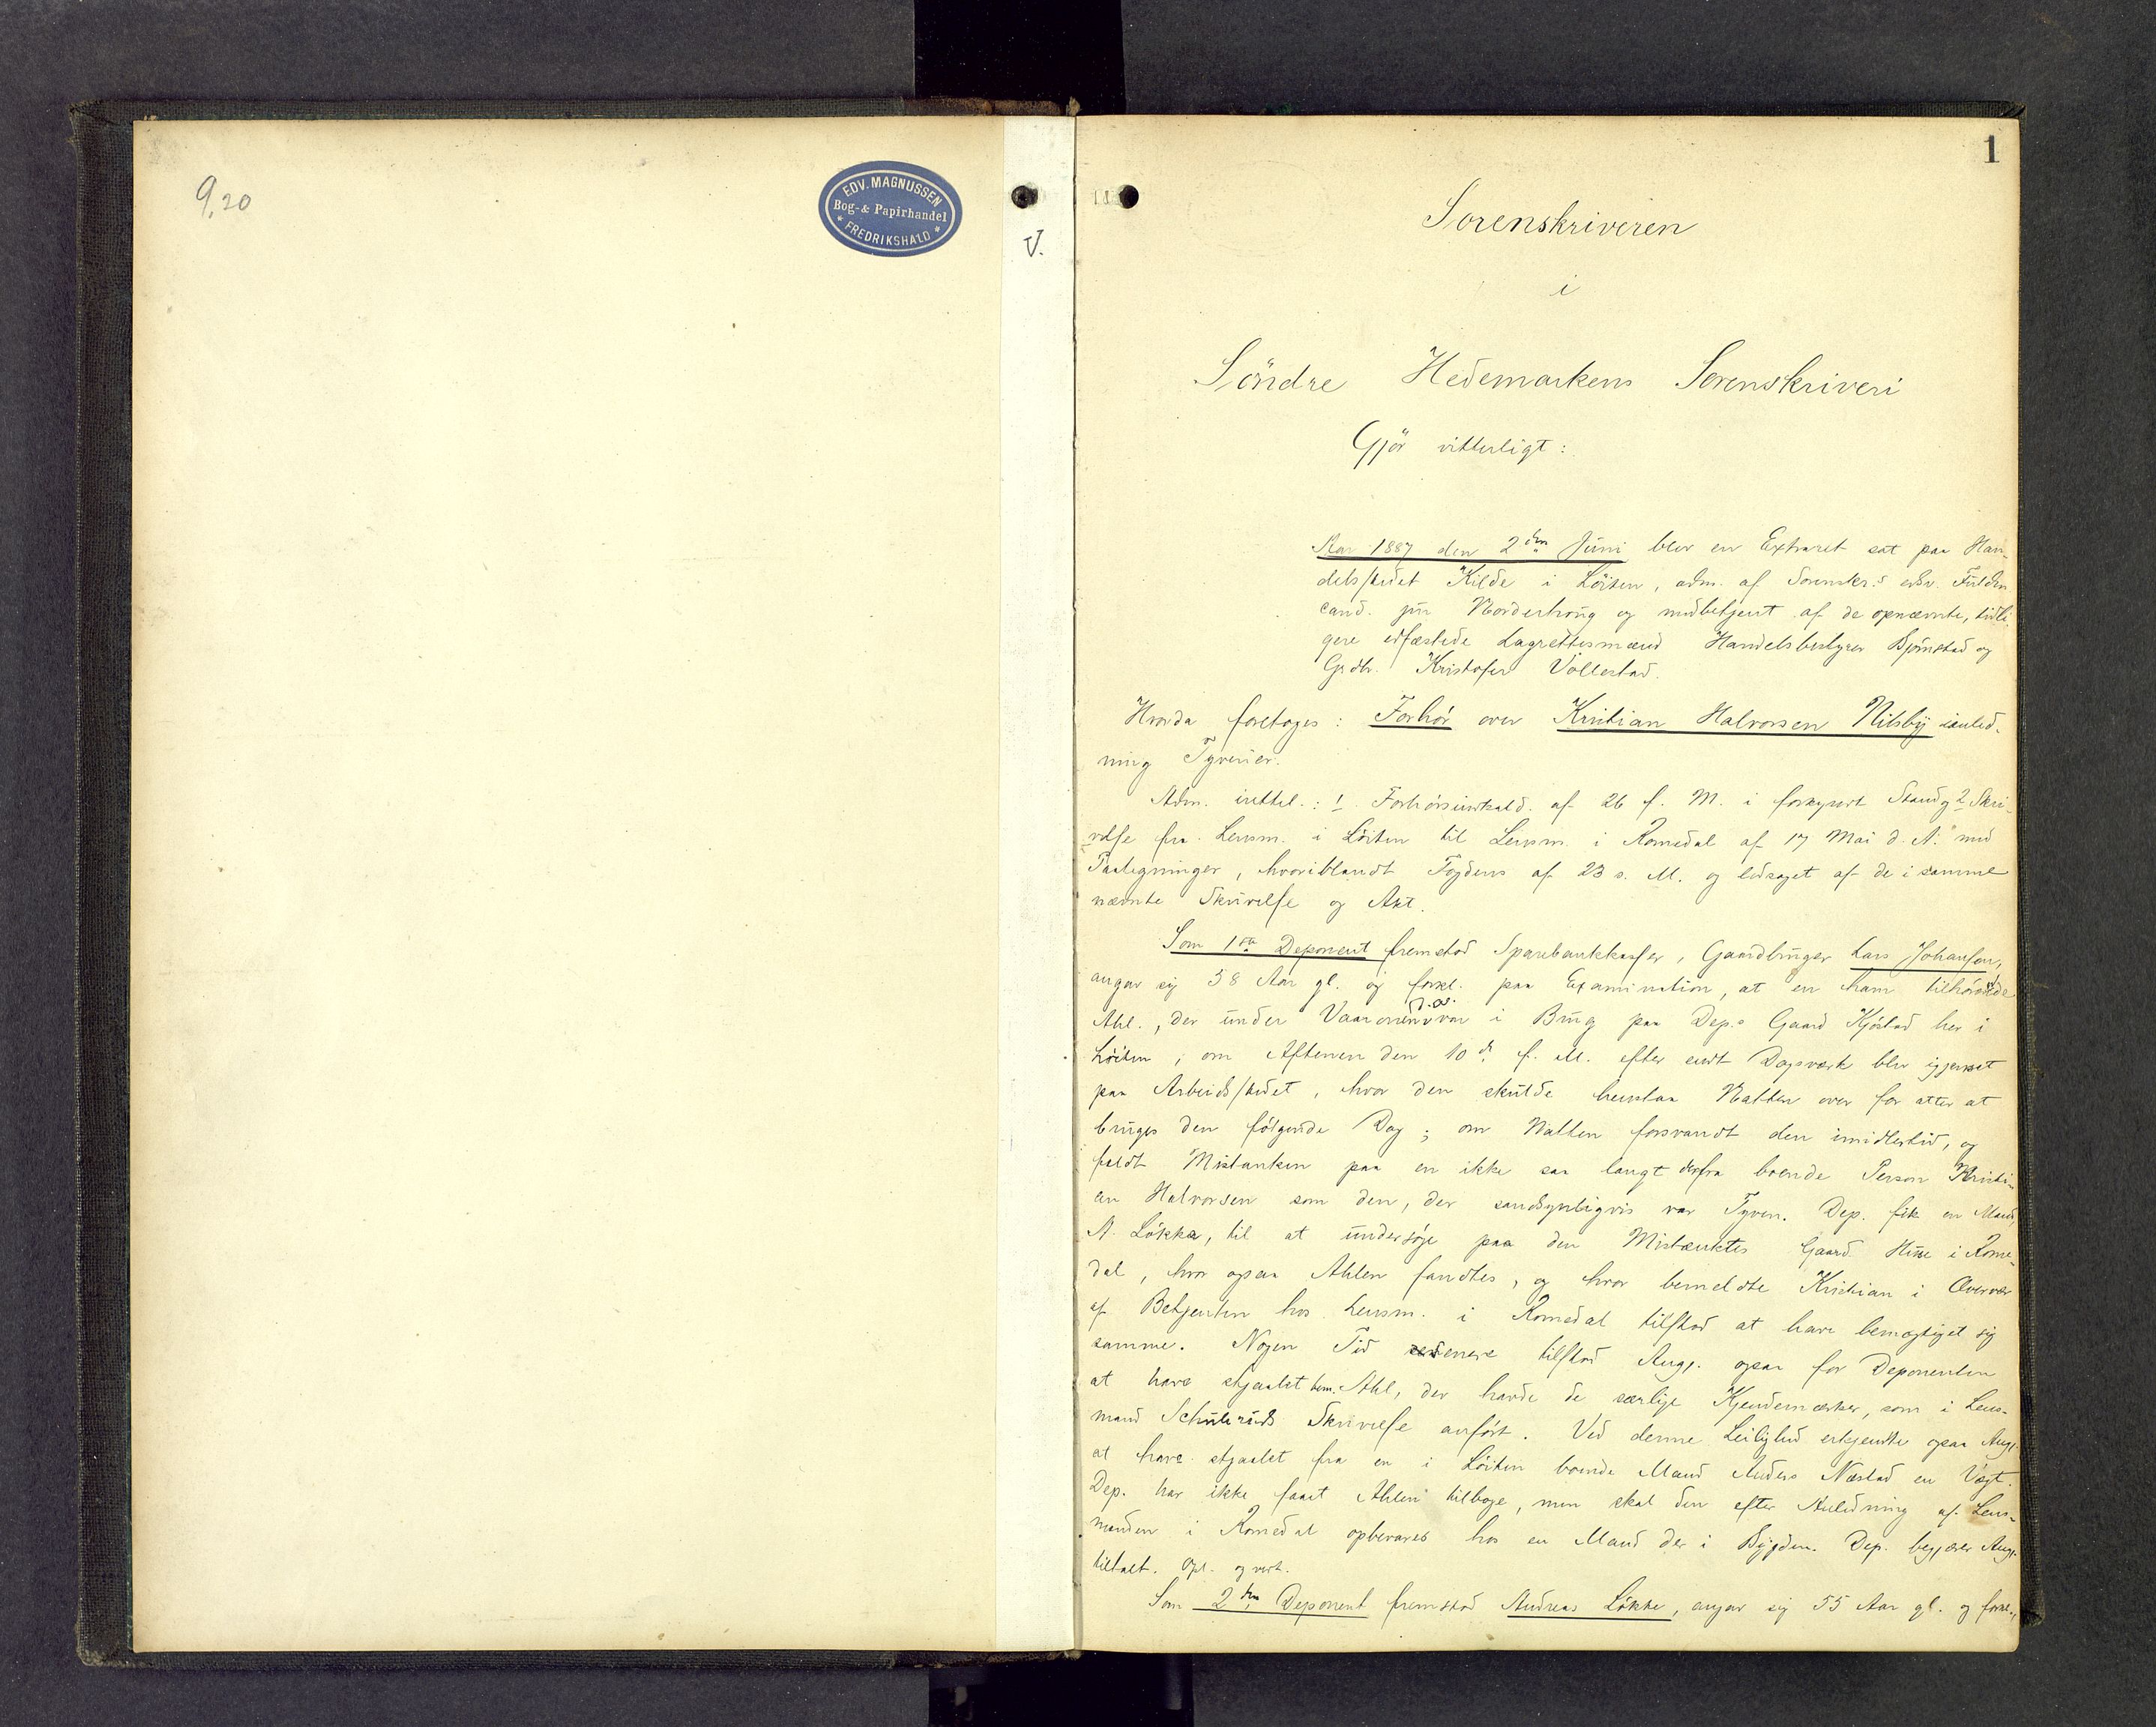 9,20
EDV. MAGNUSSEN
Bog- & Papirhandel
* FREDRIKSHALD *
V.
1
Sorenskriveren
i
Söndre Hedemarkens Sorenskriveri
Gjör vitterligt:
Aar 1887 den 2den Juni blev en Extraret sat paa Han-
delsstedet Kilde i Löiten, adm. af Sorenskr.s edsv. Fuldm
cand. jur Norderhoug og medbetjent af de opnævnte, tidli-
gere edfæstede Lagrettesmænd Handelsbestyrer Björnstad og
Grdbr. Kristofer Vollestad.
Hvorda foretoges: Forhör over Kristian Halvorsen Nilsby ianled-
ning Tyverier.
Adm. irettel.: 1 Forhörsindkald. af 26 f. M. i forkyndt Stand og 2 Skri-
velse fra Lensm. i Löiten til Lensm. i Romedal af 17 Mai d. A. med
Paategninger, hvoriblandt Fogdens af 23 s. M. og ledsaget af de i samme
nævnte Skrivelse og Akt.
Som 1ste Deponent fremstod Sparebankkasser, Gaardbruger Lars Johansen,
angav sig 58 Aar gl. og forkl. paa Examination, at en ham tilhörende
Ahl., der under Vaaronnen d. A. var i Brug paa Dep.s Gaard Kjöstad her i
Löiten, om Aftenen den 10de f. M. efter endt Dagsværk blev igjensat
paa Arbeidsstedet, hvor den skulde henstaa Natten over for atter at
bruges den fölgende Dag; om Natten forsvandt den imidlertid, og
faldt Mistanken paa en ikke saa langt derfra boende Person Kristi-
an Halvorsen som den, der sandsynligvis var Tyven. Dep. fik en Mand,
A. Lökka, til at undersöge paa den Mistænktes Gaard i Rome-
dal, hvor ogsaa Ahlen fandtes, og hvor bemeldte Kristian i Overvær
af Betjenten hos Lensm. i Romedal tilstod at have bemægtiget sig
samme. Nogen Tid senere tilstod Ang. ogsaa for Deponenten
at have stjaalet bem. Ahl, der havde de særlige Kjendemærker, som i Lens-
mand Schulruds Skrivelse anfört. Ved denne Leilighed erkjendte ogsaa Ang.
at have stjaalet fra en i Löiten boende Mand Anders Næstad en Vægt.
Dep. har ikke faaet Ahlen tilbage, men skal den efter Anledning af Lens-
manden i Romedal opbevares hos en Mand der i Bygden. Dep. begjærer Ang.
tiltalt. Opl. og vedt.
Som 2den Deponent fremstod Andreas Lökke, angav sig 55 Aar gl. og forkl.,